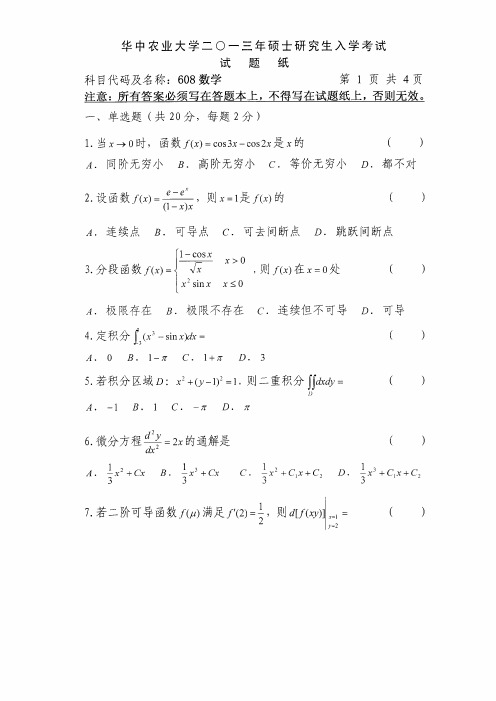 华中农业大学二〇一三年硕士研究生入学考试
试 题 纸
科目代码及名称：608 数学 第 1 页 共 4 页
注意：所有答案必须写在答题本上，不得写在试题纸上，否则无效。
一、单选题（共 20 分，每题 2 分）
1. 当 x → 0 时，函数 f(x) = cos 3x − cos 2x 是 x 的 （ ）
A．同阶无穷小 B．高阶无穷小 C．等价无穷小 D．都不对
2. 设函数 f(x) = (e − e^x)/((1 − x)x)，则 x = 1 是 f(x) 的 （ ）
A．连续点 B．可导点 C．可去间断点 D．跳跃间断点
3. 分段函数 f(x) = { (1 − cos x)/√x x > 0
x² sin x x ≤ 0 ，则 f(x) 在 x = 0 处 （ ）
A．极限存在 B．极限不存在 C．连续但不可导 D．可导
4. 定积分 ∫(x³ − sin x)dx = （ ）
A．0 B．1 − π C．1 + π D．3
5. 若积分区域 D：x² + (y − 1)² = 1，则二重积分 ∬_D dxdy = （ ）
A．−1 B．1 C．−π D．π
6. 微分方程 d²y/dx² = 2x 的通解是 （ ）
A．1/3 x² + Cx B．1/3 x³ + Cx C．1/3 x² + C₁x + C₂ D．1/3 x³ + C₁x + C₂
7. 若二阶可导函数 f(μ) 满足 f'(2) = 1/2，则 d[f(xy)]|x=1 y=2 = （ ）